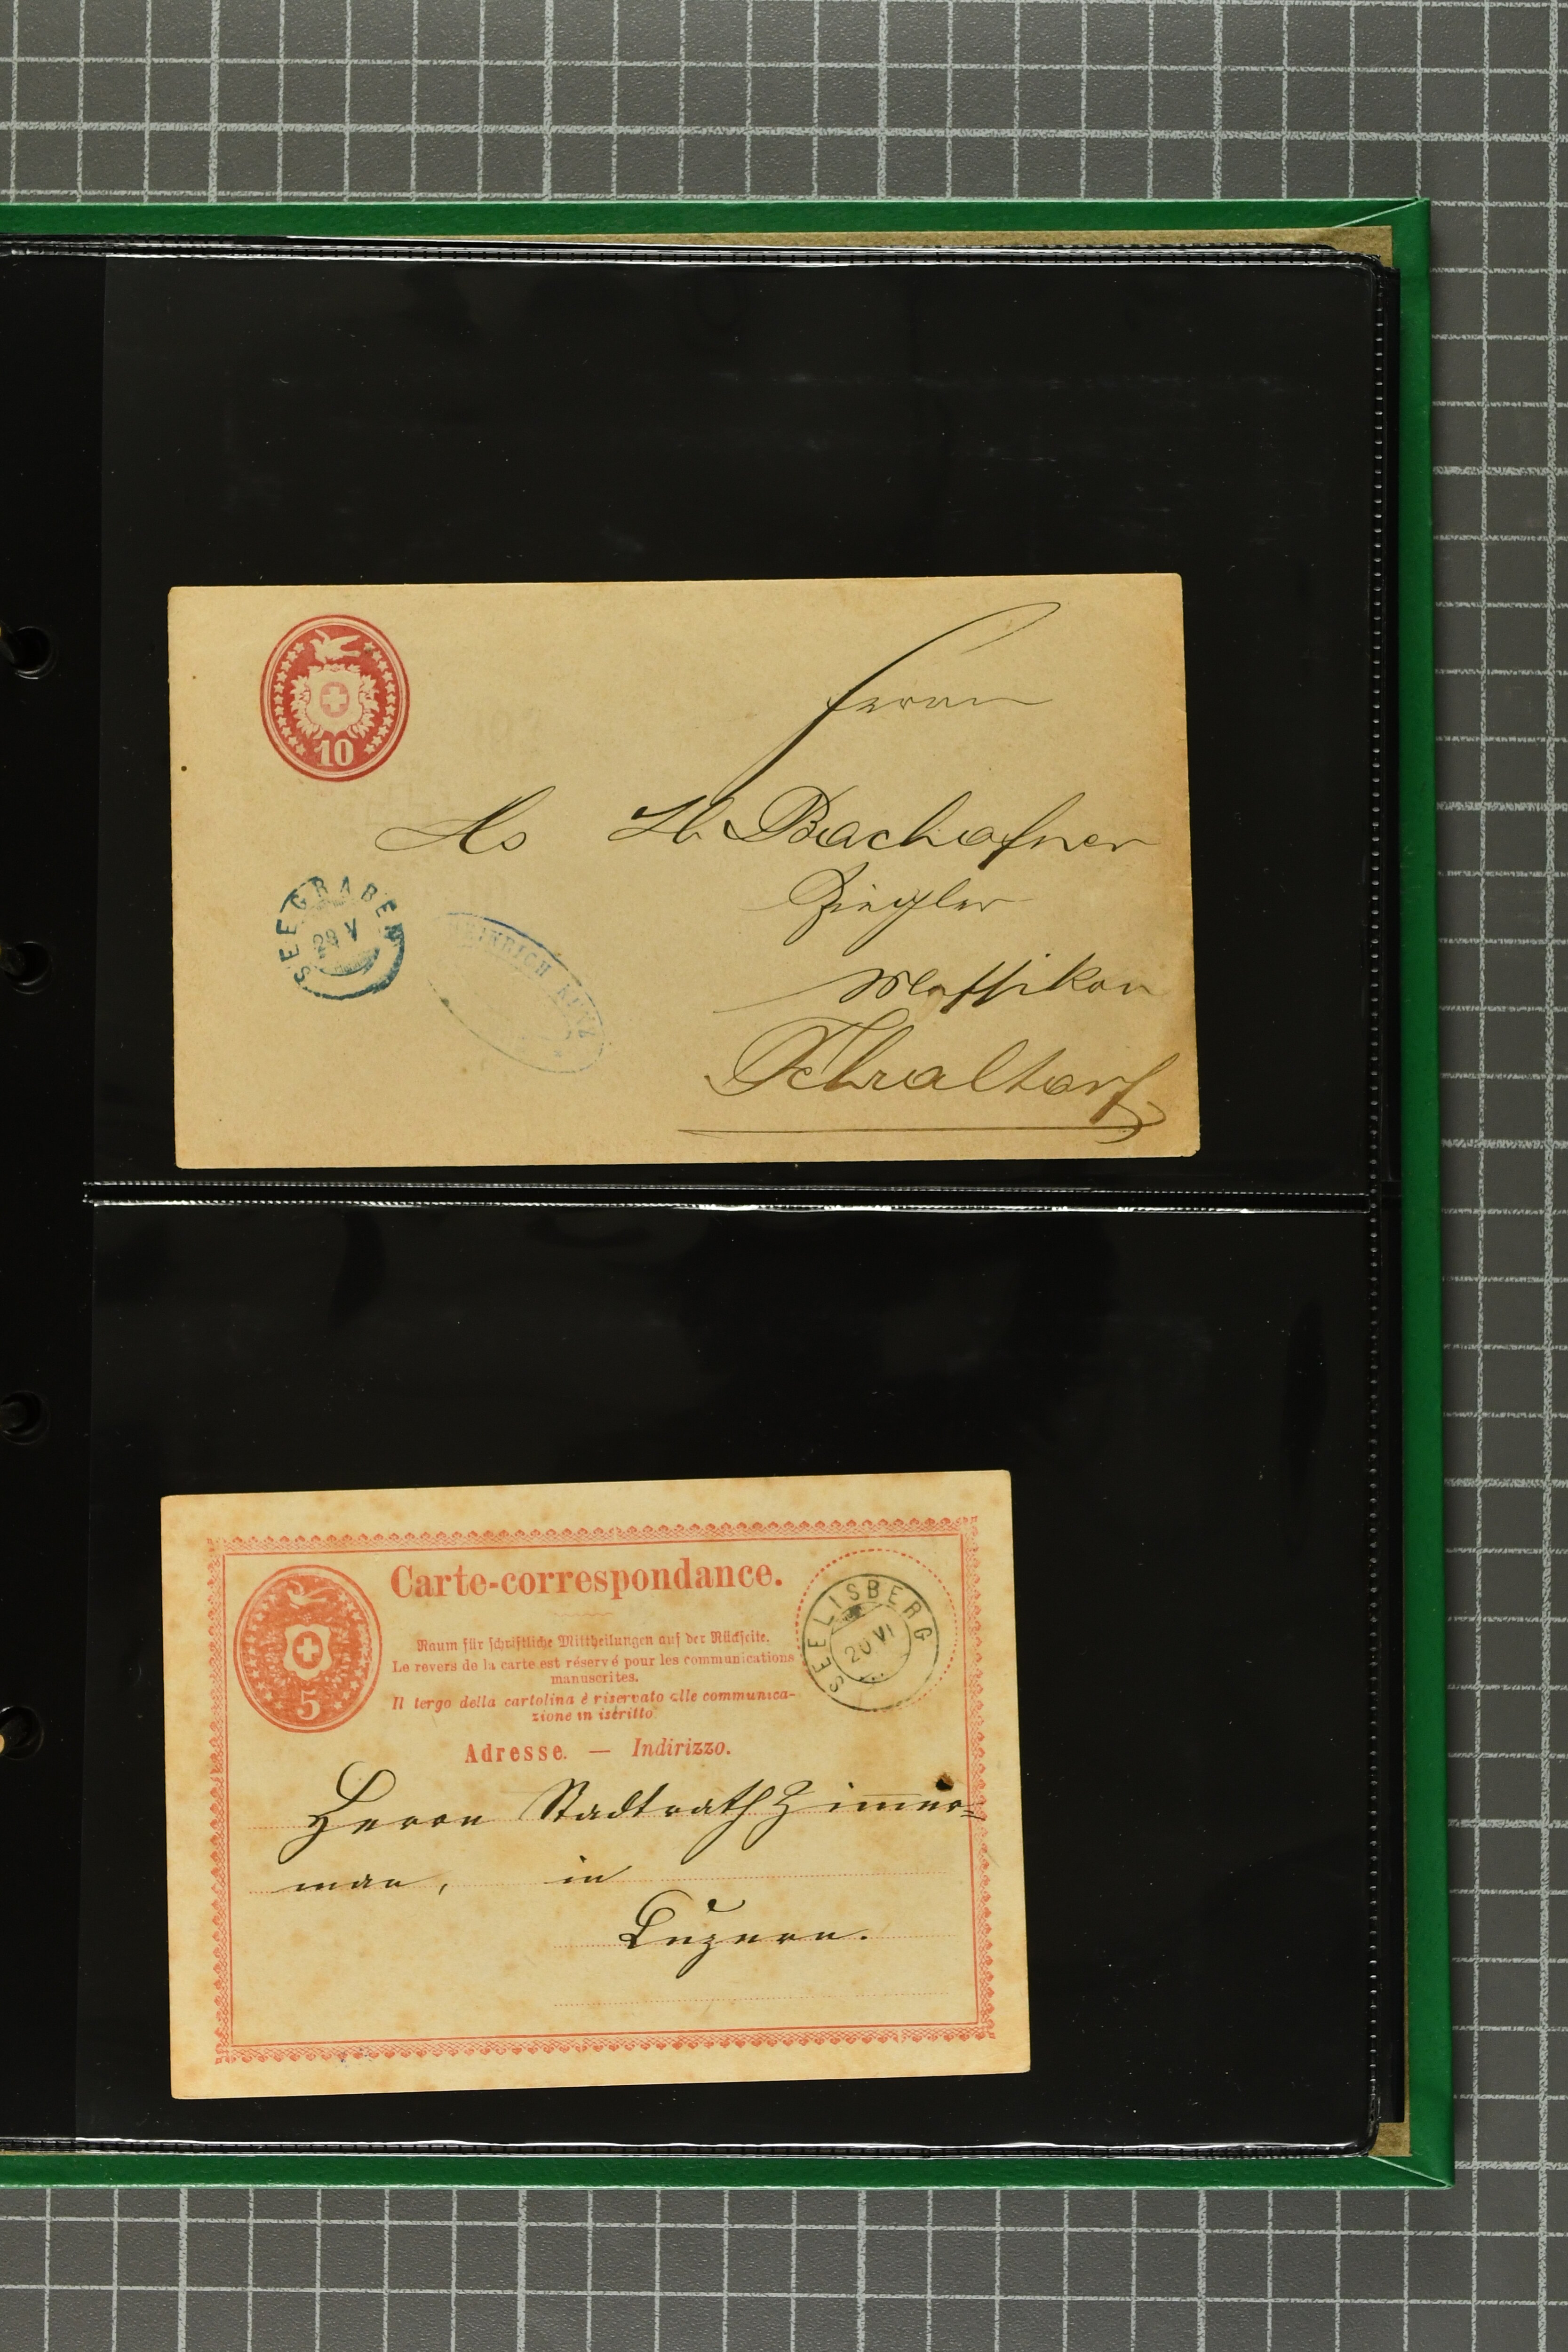 10
Herrn
Hb. Bachofner
Ziegler
Fehraltorf
SEEGRÄBEN
29 V
HEINRICH KUNZ
Carte-correspondance.
Raum für schriftliche Mittheilungen auf der Rückseite.
Le revers de la carte est réservé pour les communications
manuscrites.
Il tergo della cartolina è riservato alle communica-
zione in iscritto.
SEELISBERG
20 VI
5
Adresse. — Indirizzo.
Herrn Stadtrath Zimmer=
man, in
Luzern.